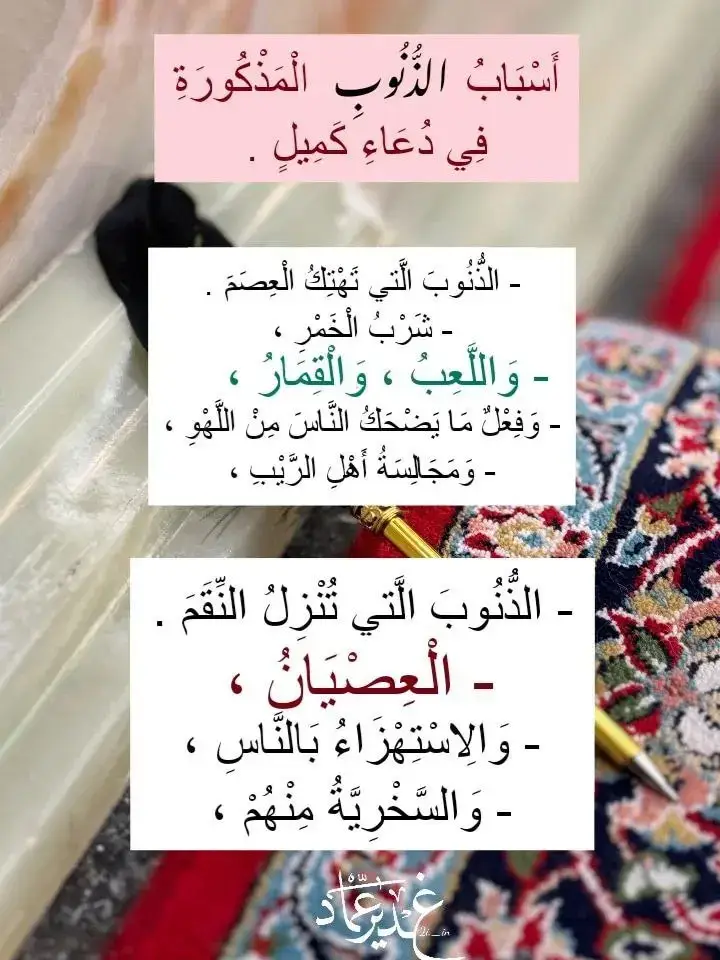 أَسْبَابُ الذُّنُوبِ الْمَذْكُورَةِ
فِي دُعَاءِ كَمِيلٍ .
- الذُّنُوبَ الَّتي تَهْتِكُ الْعِصَمَ .
- شَرْبُ الْخَمْرِ ،
- وَاللَّعِبُ ، وَالْقِمَارُ ،
- وَفِعْلٌ مَا يَضْحَكُ النَّاسَ مِنْ اللَّهْوِ ،
- وَمَجَالِسَةُ أَهْلِ الرَّيْبِ ،
- الذُّنُوبَ الَّتي تُنْزِلُ النِّقَمَ .
- الْعِصْيَانُ ،
- وَالِاسْتِهْزَاءُ بَالنَّاسِ ،
- وَالسَّخْرِيَّةُ مِنْهُمْ ،
غدير عماد